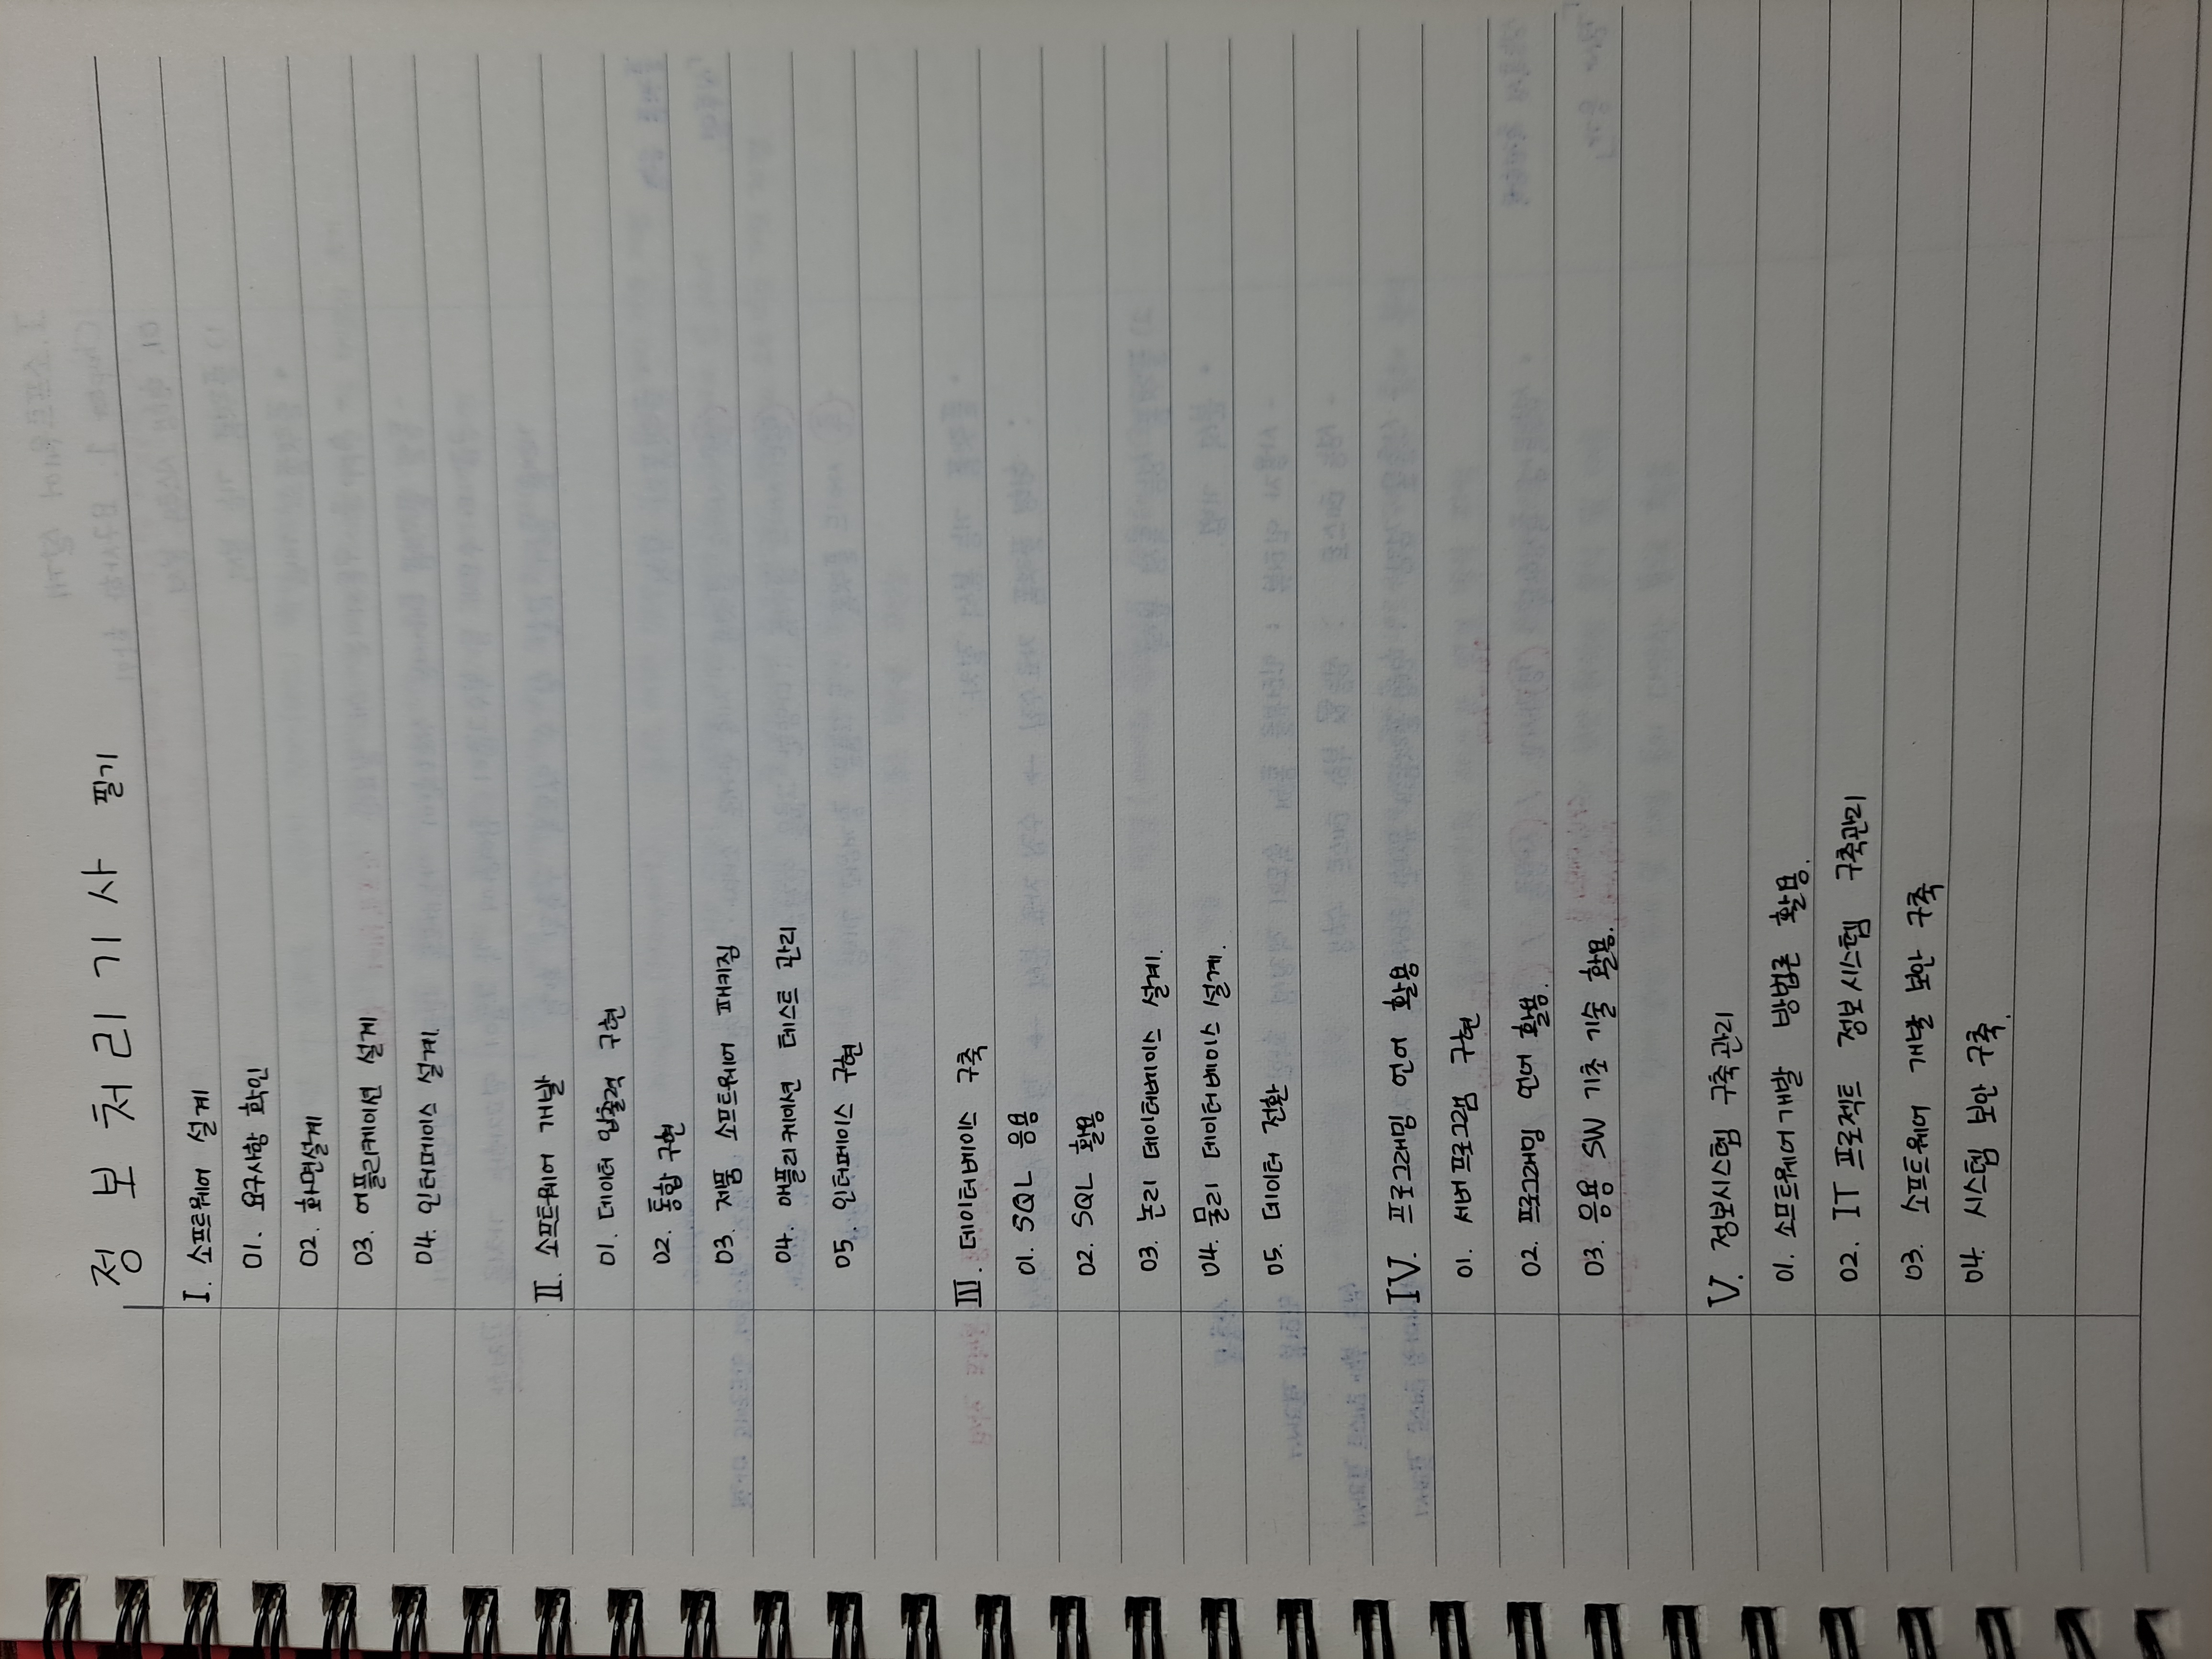 정보처리기사 필기
I. 소프트웨어 설계
01. 요구사항 확인
02. 화면설계
03. 어플리케이션 설계
04. 인터페이스 설계.
II. 소프트웨어 개발
01. 데이터 입출력 구현
02. 통합 구현
03. 제품 소프트웨어 패키징
04. 애플리케이션 테스트 관리
05. 인터페이스 구현
III. 데이터베이스 구축
01. SQL 응용
02. SQL 활용
03. 논리 데이터베이스 설계.
04. 물리 데이터베이스 설계.
05. 데이터 전환
IV. 프로그래밍 언어 활용
01. 서버프로그램 구현
02. 프로그래밍 언어 활용.
03. 응용 SW 기초 기술 활용.
V. 정보시스템 구축관리
01. 소프트웨어개발 방법론 활용.
02. IT 프로젝트 정보시스템 구축관리
03. 소프트웨어 개발 보안 구축
04. 시스템 보안 구축.